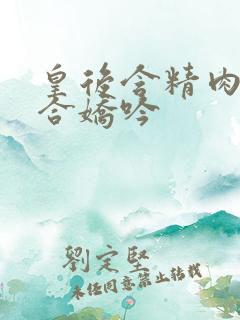 皇後含精肉
合嬌吟
劉定堅
未经同意禁止转载